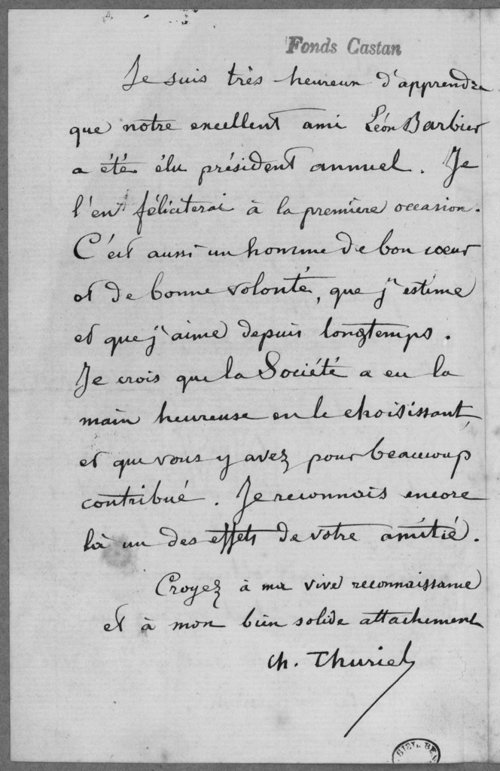 Fonds Castan
Je suis très heureux d'apprendre
que notre excellent ami Léon Barbier
a été élu président annuel. Je
l'en féliciterai à la première occasion.
C'est aussi un homme de bon cœur
et de bonne volonté, que j'estime
et que j'aime depuis longtemps.
Je crois que la Société a eu la
main heureuse en le choisissant,
et que vous y avez pour beaucoup
contribué. Je reconnais encore
là un des effets de votre amitié.
Croyez à ma vive reconnaissance
et à mon bien solide attachement
Ch. Thuriet